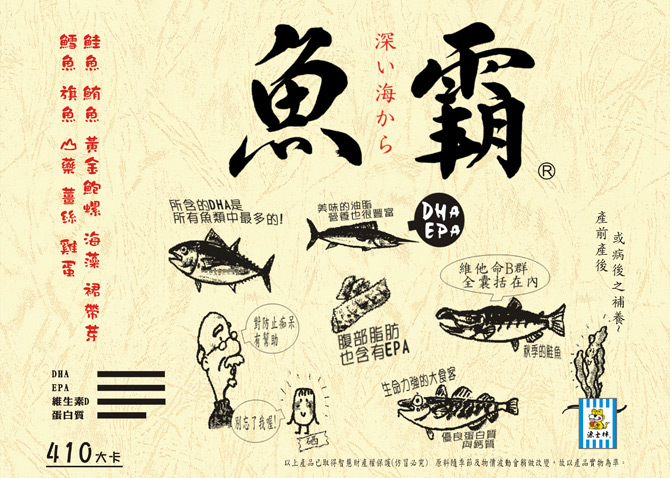 魚霸
深い海から
®
鮭魚 鮪魚 黃金鮑螺 海藻 裙帶芽
鱈魚 旗魚 山藥 薑絲 雞蛋
所含的DHA是
所有魚類中最多的!
美味的油脂
營養也很豐富
DHA
EPA
產前產後
或病後之補養~
維他命B群
全囊括在內
對防止痴呆
有幫助
腹部脂肪
也含有EPA
秋季的鮭魚
生命力強的大食客
別忘了我喔!
優良蛋白質
與鈣質
DHA
EPA
維生素D
蛋白質
410大卡
以上產品已取得智慧財產權保護(仿冒必究) 原料隨季節及物價波動會稍做改變，故以產品實物為準。